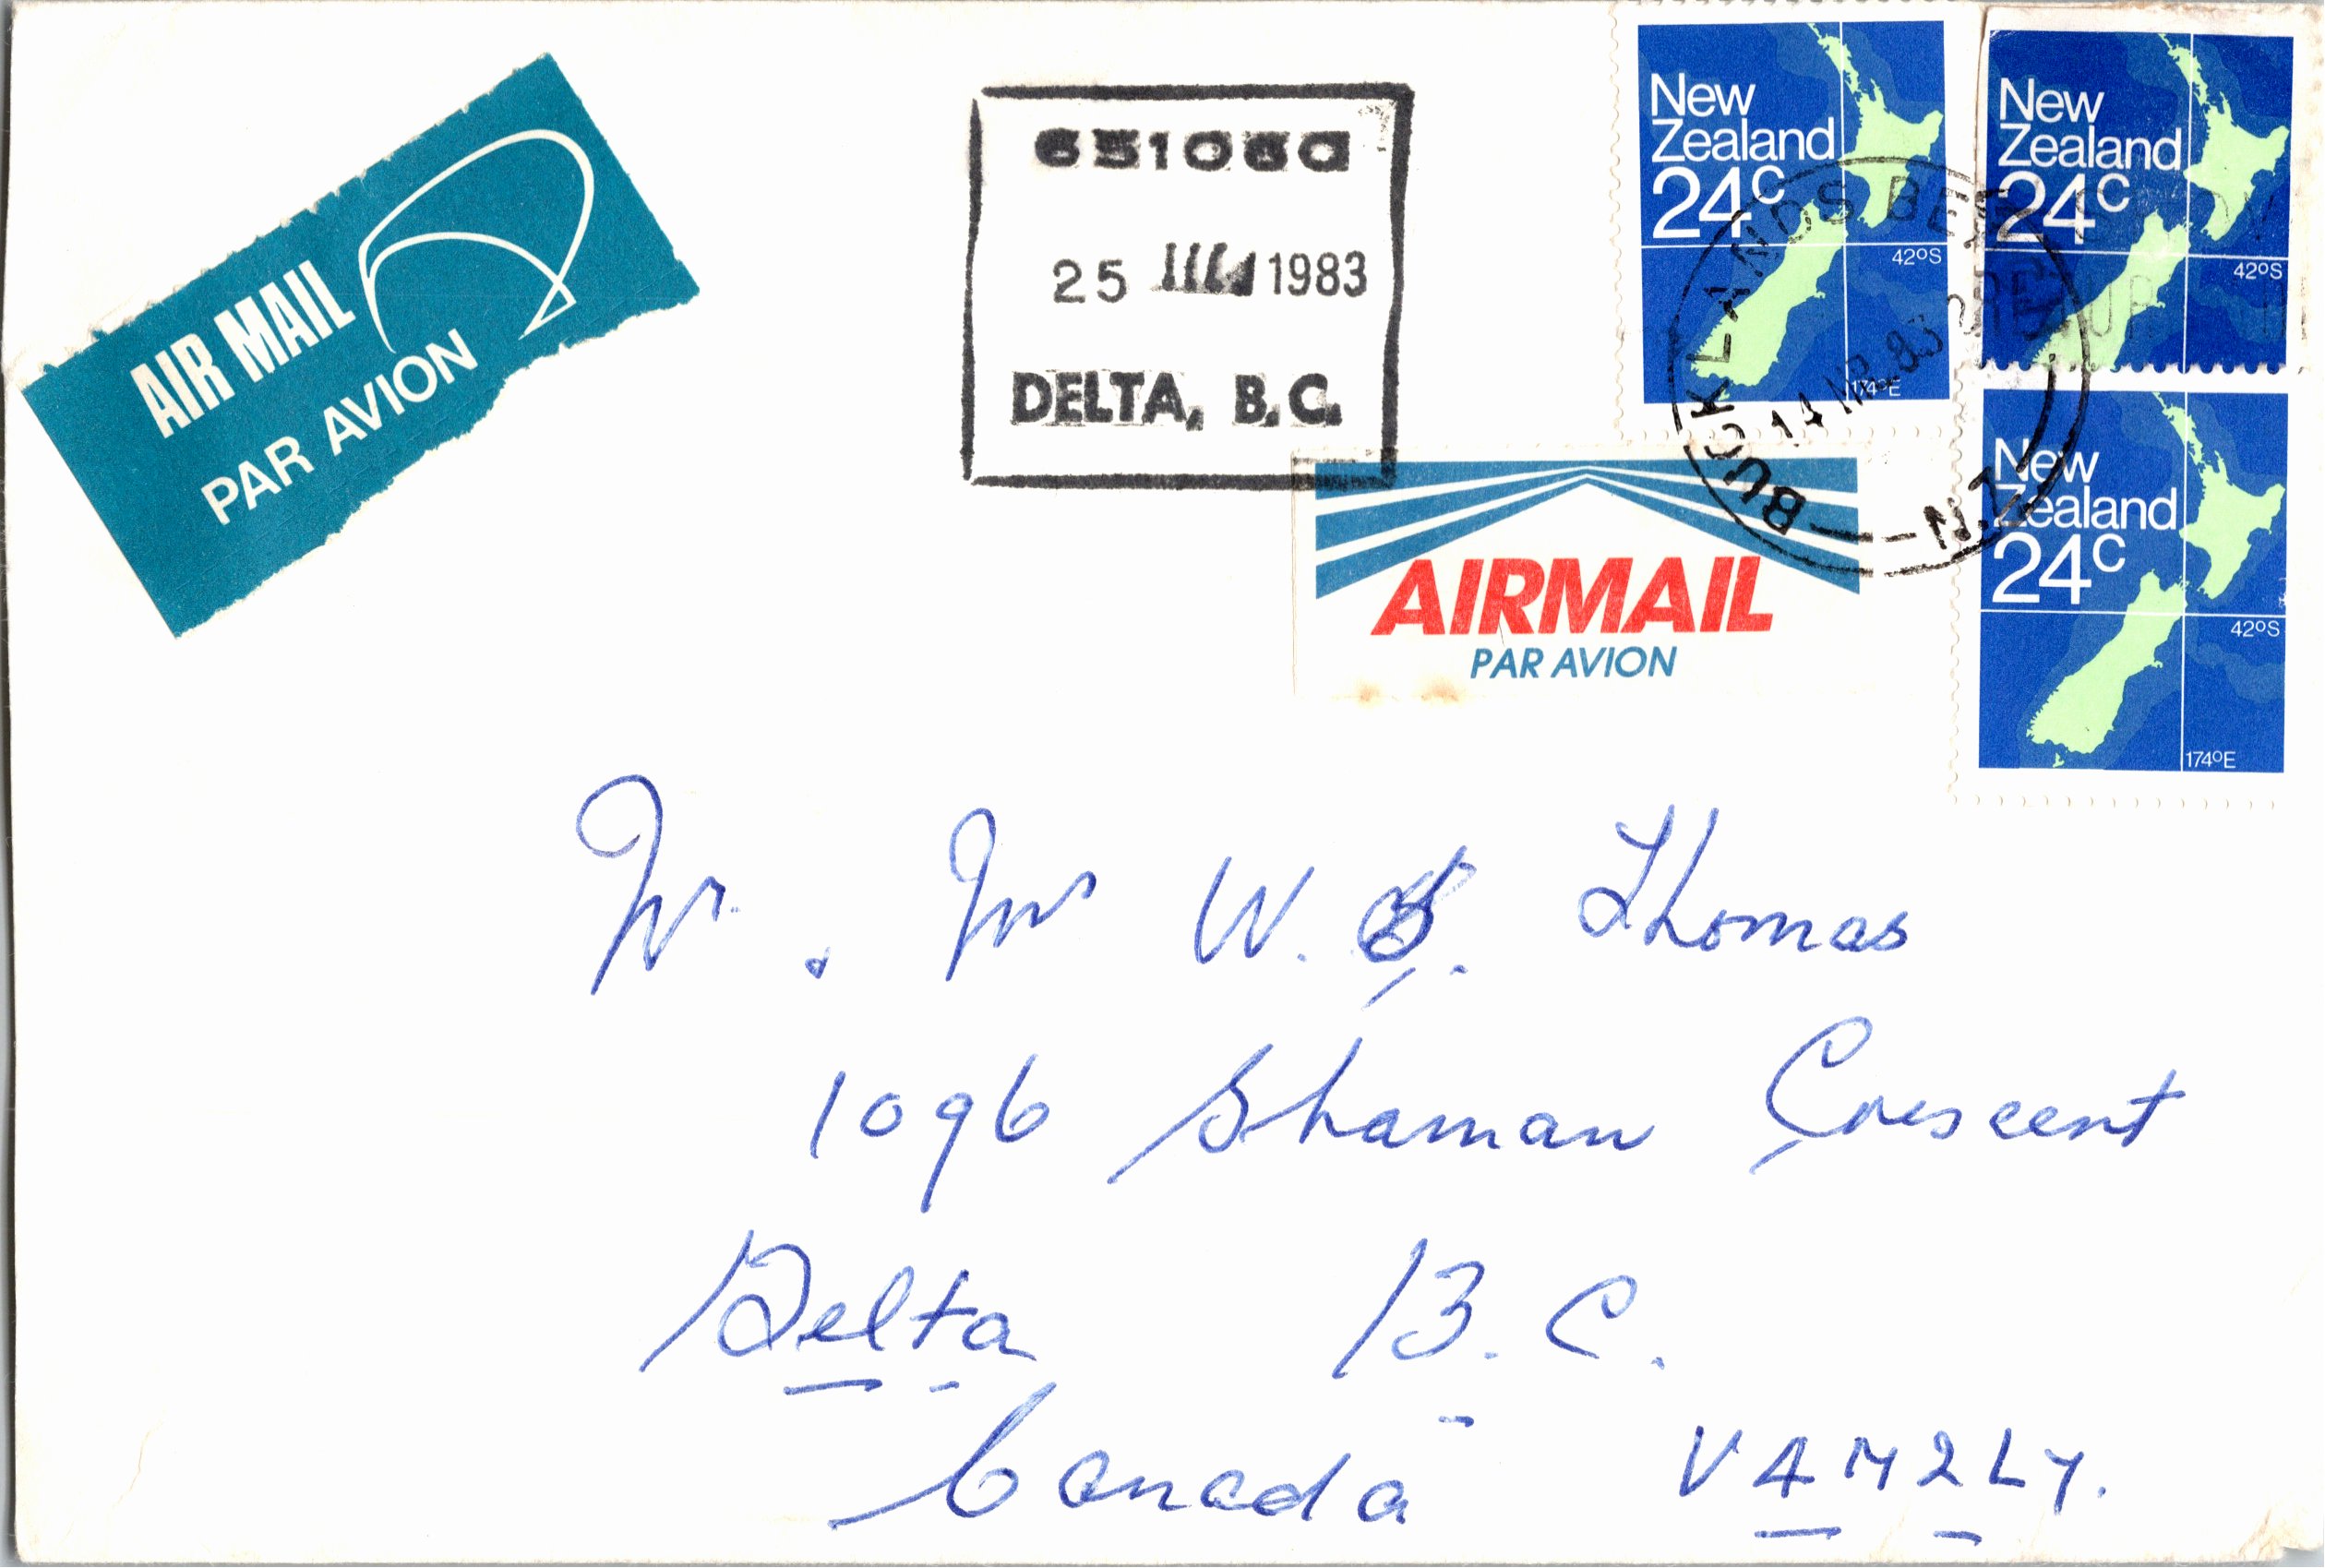 AIR MAIL
PAR AVION
651080
25 1983
DELTA, B.C.
New
Zealand
24c
42ºS
174ºE
New
Zealand
24c
42ºS
New
Zealand
24c
42ºS
174ºE
BUCKLANDS BEACH
14 MR 83
N.Z.
AIRMAIL
PAR AVION
Mr. & Mrs W. Thomas
1096 Shaman Crescent
Delta B.C.
Canada V4M2L7.